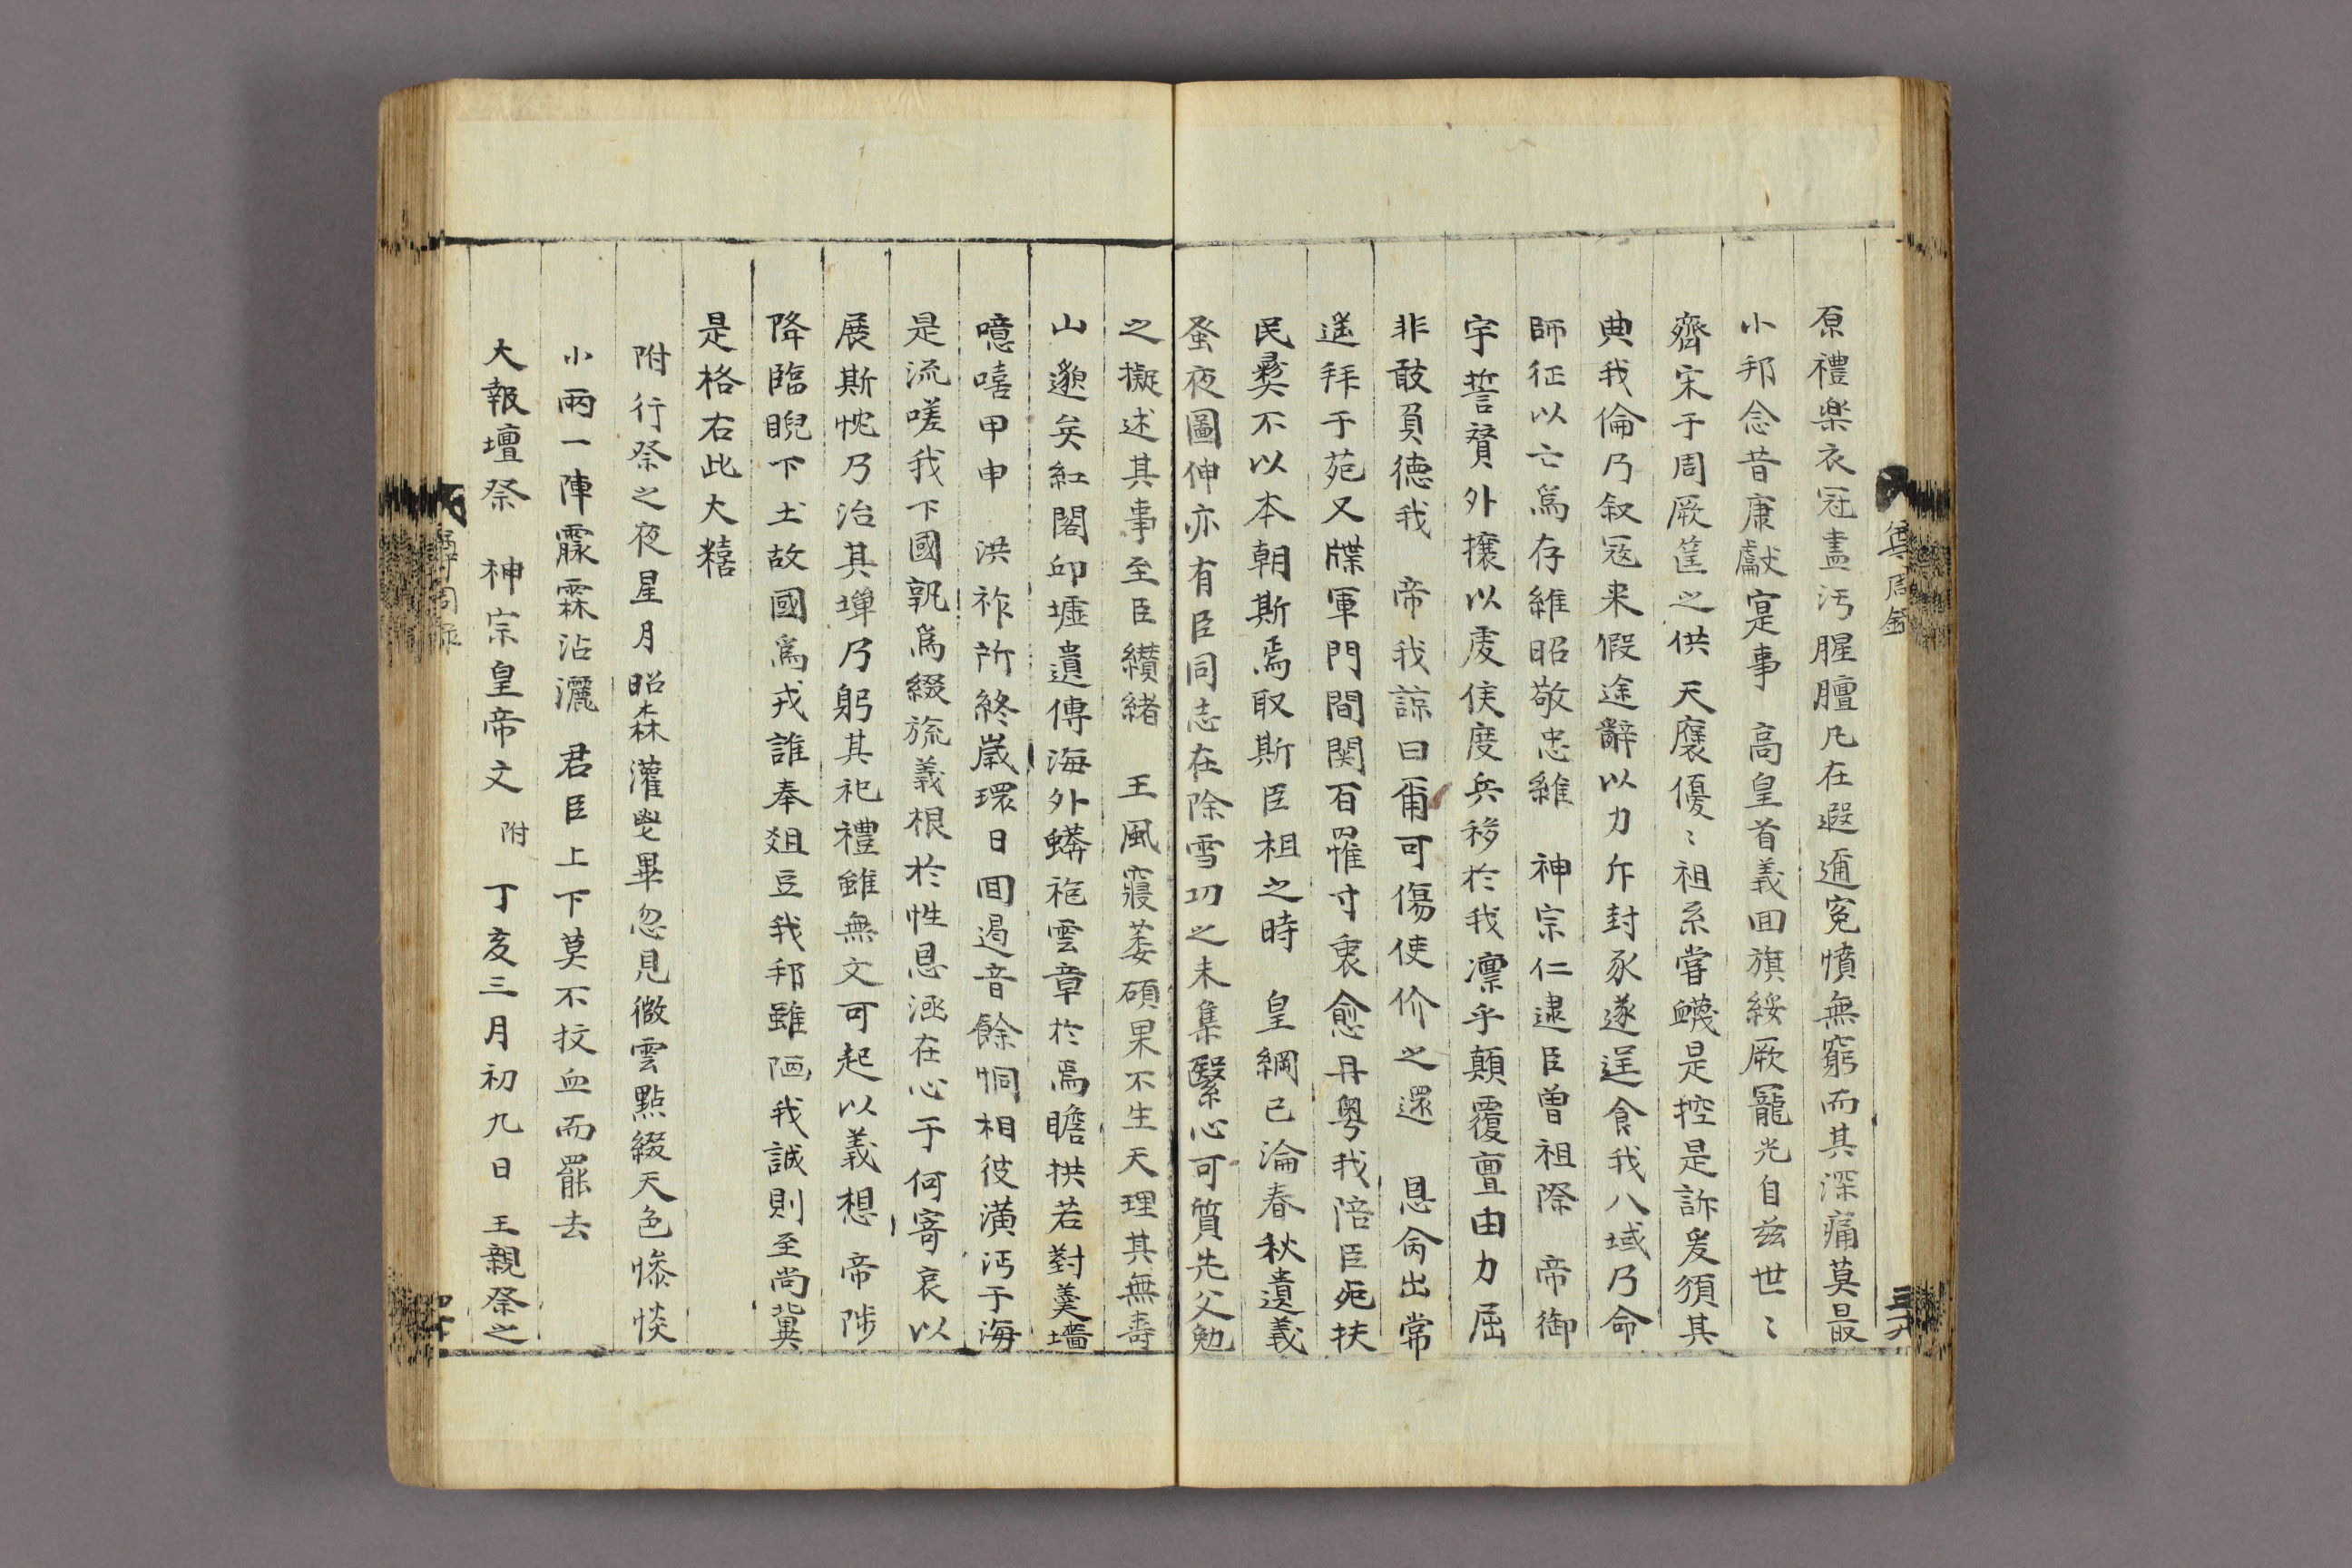 尊周錄
三十九
原禮樂衣冠盡汚腥膻凡在遐邇寃憤無窮而其深痛莫最
小邦念昔康獻寔事　高皇首義回旗綏厥寵光自玆世〻
齊宋于周厥篚之供　天褒優〻祖系嘗衊是控是訴爰須其
典我倫乃叙冦来假途辭以力斥封豕遂逞食我八域乃命
師征以亡爲存維昭敬忠維　神宗仁逮臣曾祖際　帝御
宇誓賛外攘以虔侯度兵移於我凛乎顛覆亶由力屈
非敢負德我　帝我諒曰甭可傷使价之還　恩侖出常
遥拜于苑又牒軍門間関百罹寸衷愈丹粤我陪臣死扶
民彛不以本朝斯焉取斯臣祖之時　皇綱已淪春秋遺義
蚤夜圖伸亦有臣同志在除雪功之未集繄心可質先父勉
之擬述其事至臣纘緒　王風寢萎碩果不生天理其無壽
山邈矣紅閣邱墟遺傳海外蟒袍雲章於焉瞻拱若對羹墻
噫嘻甲申　洪祚所終歲環日回遏音餘恫相彼潢汚于海
是流嗟我下國孰爲綴旒義根於性恩湎在心于何寄哀以
展斯忱乃治其墠乃躬其祀禮雖無文可起以義想　帝陟
降臨睨下土故國爲戎誰奉俎豆我邦雖陋我誠則至尚冀
是格右此大糦
附行祭之夜星月昭森灌㘽畢忽見微雲點綴天色慘惔
小雨一陣霢霂沾灑　君臣上下莫不抆血而罷去
大報壇祭　神宗皇帝文　附　丁亥三月初九日　王親祭之
尊周錄
四十